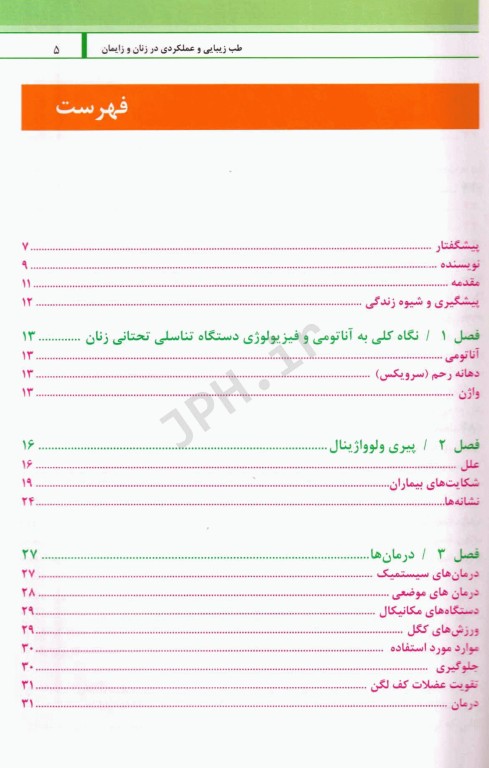 طب زیبایی و عملکردی در زنان و زایمان ۵
فهرست
پیشگفتار ۷
نویسنده ۹
مقدمه ۱۱
پیشگیری و شیوه زندگی ۱۲
فصل ۱ / نگاه کلی به آناتومی و فیزیولوژی دستگاه تناسلی تحتانی زنان ۱۳
آناتومی ۱۳
دهانه رحم (سرویکس) ۱۳
واژن ۱۳
فصل ۲ / پیری ولوواژینال ۱۶
علل ۱۶
شکایت‌های بیماران ۱۹
نشانه‌ها ۲۴
فصل ۳ / درمان‌ها ۲۷
درمان‌های سیستمیک ۲۷
درمان های موضعی ۲۸
دستگاه‌های مکانیکال ۲۹
ورزش‌های کگل ۲۹
موارد مورد استفاده ۳۰
جلوگیری ۳۰
تقویت عضلات کف لگن ۳۱
درمان ۳۱
JPH.ir